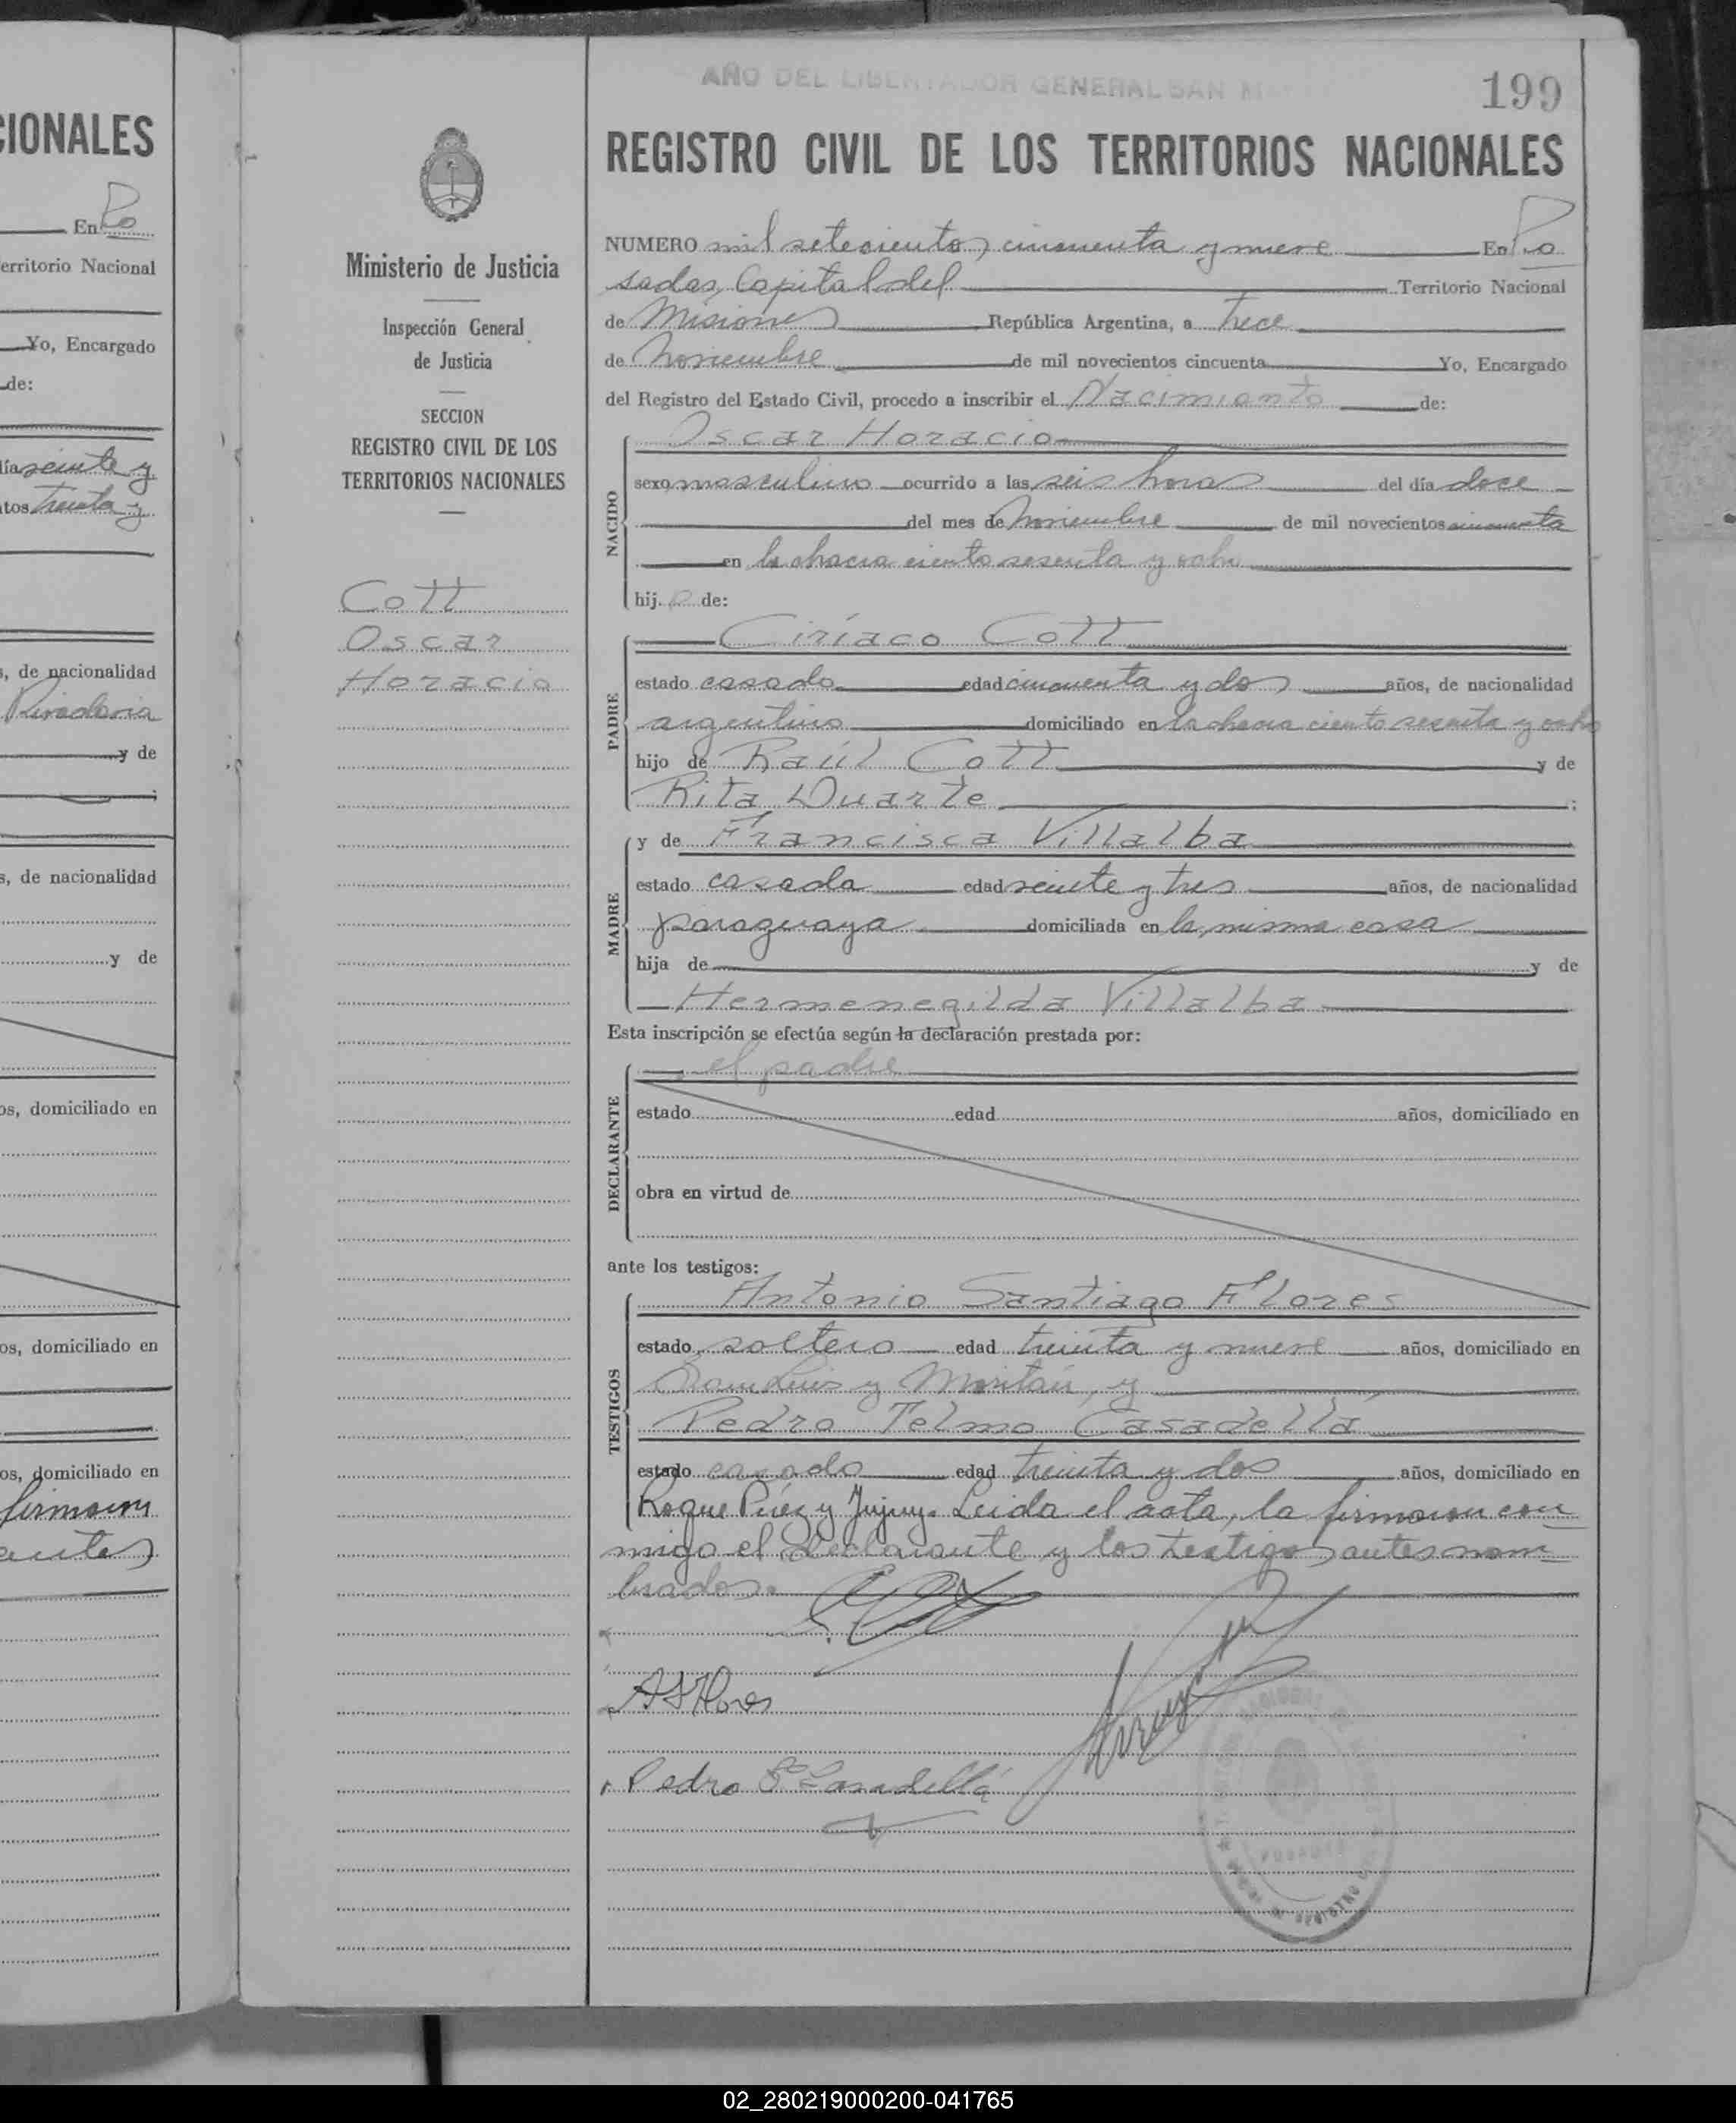 CIONALES
En Po
erritorio Nacional
Yo, Encargado
de:
día veinte y
tos treinta y
s, de nacionalidad
Rivadavia
y de
;
s, de nacionalidad
y de
os, domiciliado en
os, domiciliado en
os, domiciliado en
firmaron
antes
Ministerio de Justicia
Inspección General
de Justicia
SECCION
REGISTRO CIVIL DE LOS
TERRITORIOS NACIONALES
Cott
Oscar
Horacio
AÑO DEL LIBERTADOR GENERAL SAN
199
REGISTRO CIVIL DE LOS TERRITORIOS NACIONALES
NUMERO mil setecientos cincuenta y nueve En Po
sadas, Capital del Territorio Nacional
de Misiones República Argentina, a trece
de Noviembre de mil novecientos cincuenta Yo, Encargado
del Registro del Estado Civil, procedo a inscribir el Nacimiento de:
NACIDO
Oscar Horacio
sexo masculino ocurrido a las seis horas del día doce
del mes de Noviembre de mil novecientos cincuenta
en la chacra ciento sesenta y ocho
hij o de:
PADRE
Ciríaco Cott
estado casado edad cincuenta y dos años, de nacionalidad
argentino domiciliado en la chacra ciento sesenta y ocho
hijo de Raúl Cott y de
Rita Duarte ;
MADRE
y de Francisca Villalba
estado casada edad veinte y tres años, de nacionalidad
paraguaya domiciliada en la misma casa
hija de y de
Hermenegilda Villalba
Esta inscripción se efectúa según la declaración prestada por:
DECLARANTE
el padre
estado edad años, domiciliado en
obra en virtud de
ante los testigos:
TESTIGOS
Antonio Santiago Flores
estado soltero edad treinta y nueve años, domiciliado en
y Moritán, y
Pedro Telmo Casadellá
estado casado edad treinta y dos años, domiciliado en
Roque Pérez y Jujuy. Leida el acta, la firmaron con
migo el declarante y los testigos antes nom
brados.
A S Flores
Pedro T. Casadellá
02_280219000200-041765